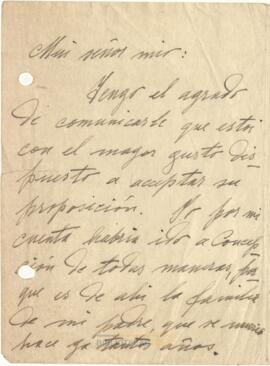 Mui señor mio:
Tengo el agrado
de comunicarle que estoi
con el mayor gusto dis-
puesto a aceptar su
proposición. Yo por mi
cuenta habria ido a Concep-
ción de todas maneras, por
que es de ahi la familia
de mi padre, que se murió
hace ya tantos años.